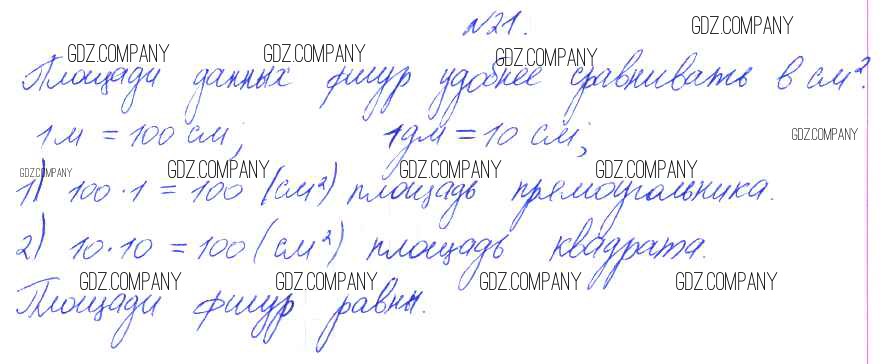 №21. GDZ.COMPANY
GDZ.COMPANY GDZ.COMPANY GDZ.COMPANY
Площади данных фигур удобнее сравнивать в см².
1 м = 100 см; 1 дм = 10 см; GDZ.COMPANY
GDZ.COMPANY GDZ.COMPANY GDZ.COMPANY GDZ.COMPANY
1) 100 · 1 = 100 (см²) площадь прямоугольника.
2) 10 · 10 = 100 (см²) площадь квадрата.
GDZ.COMPANY GDZ.COMPANY GDZ.COMPANY GDZ.COMPANY
Площади фигур равны.